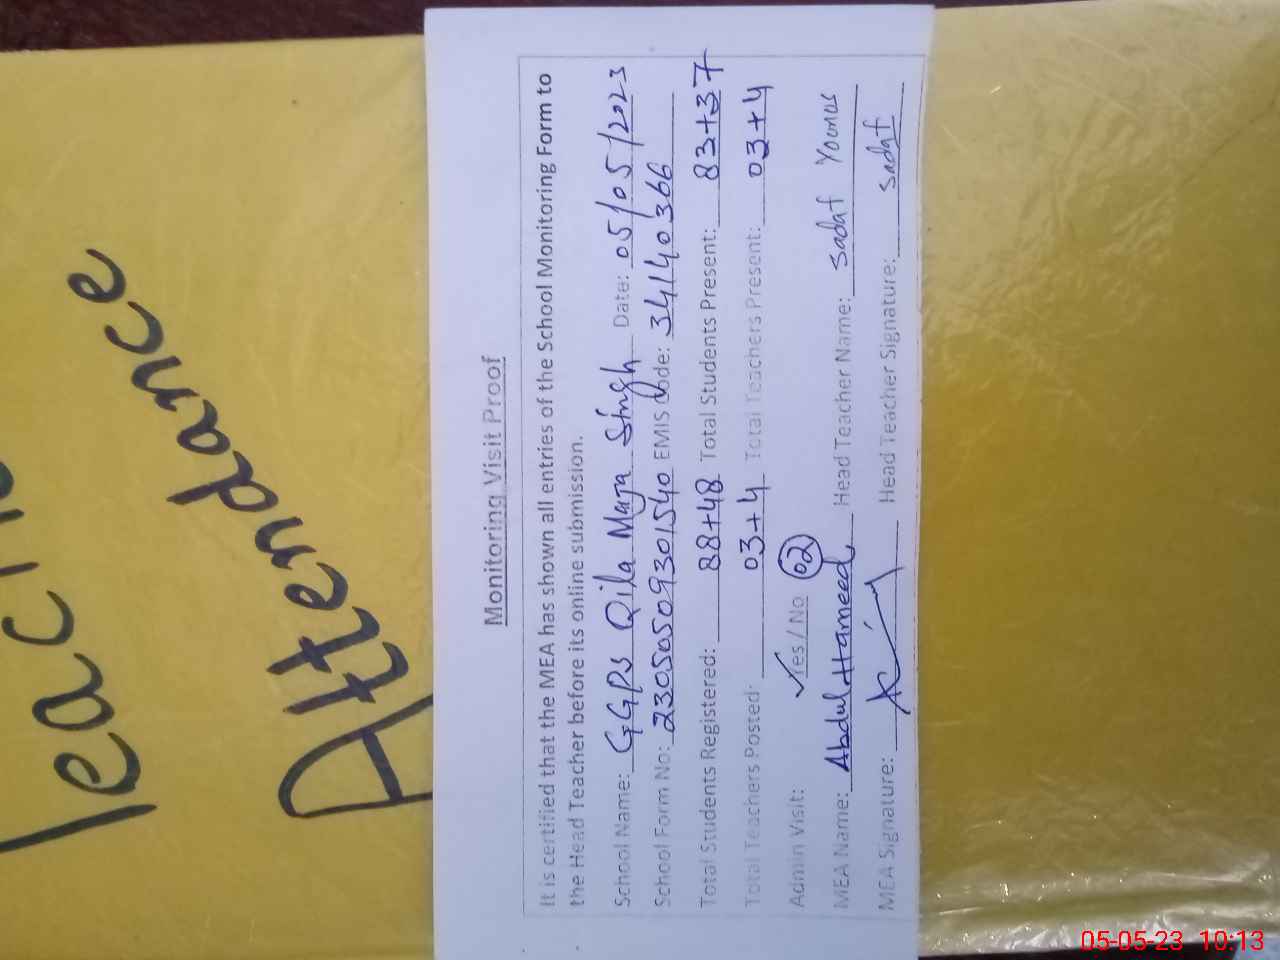 Attendance
Monitoring Visit Proof
It is certified that the MEA has shown all entries of the School Monitoring Form to
the Head Teacher before its online submission.
School Name: GGPS Qila Maja Singh Date: 05/05/2023
School Form No: 23050509301540 EMIS Code: 34140366
Total Students Registered: 88+48 Total Students Present: 83+37
Total Teachers Posted: 03+4 Total Teachers Present: 03+4
Admin Visit: ✓Yes / No 02
MEA Name: Abdul Hameed Head Teacher Name: Sadaf Younas
MEA Signature: Head Teacher Signature: Sadaf
05-05-23 10:13